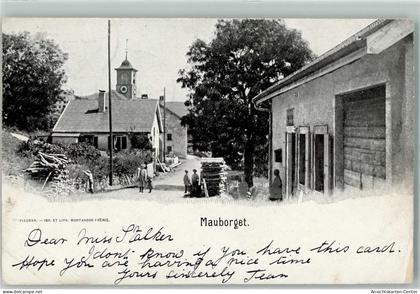 Mauborget.
FLEURIER. — IMP. ET LITH. MONTANDON FRÈRES.
Dear Miss Stalker
I dont know if you have this card.
Hope you are having a nice time
Yours sincerely Jean
www.Ansichtskarten-Center.de